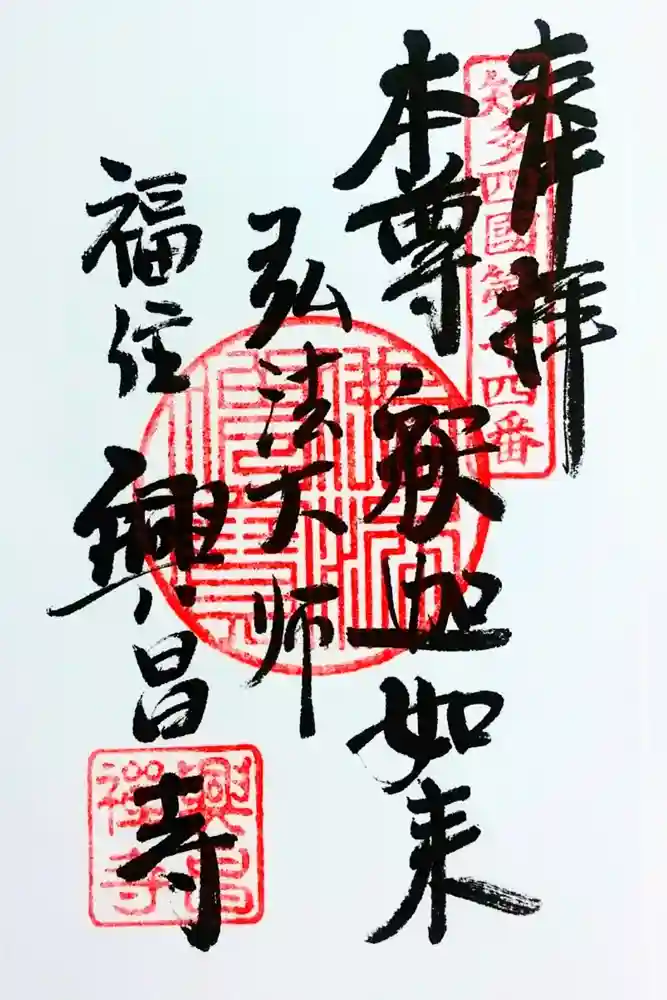 奉拝
知多四國第十四番
本尊 釈迦如来
弘法大师
佛法僧寶
福住 興昌寺
興昌禪寺